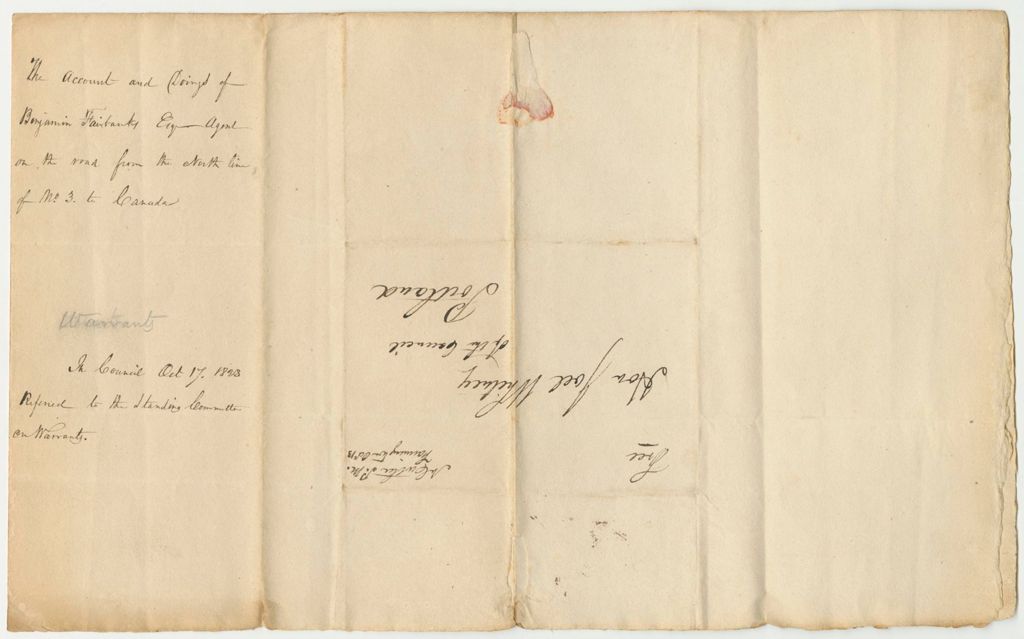 The Account and Doings of
Benjamin Fairbanks Esq Agent
on the road from the North line
of No 3. to Canada
Warrants
In Council Oct 17. 1823
Referred to the Standing Committee
on Warrants.
Free
Hon Joel Whitney
of the Council
Portland
N Cutler P. M.
Farmington Oct 13